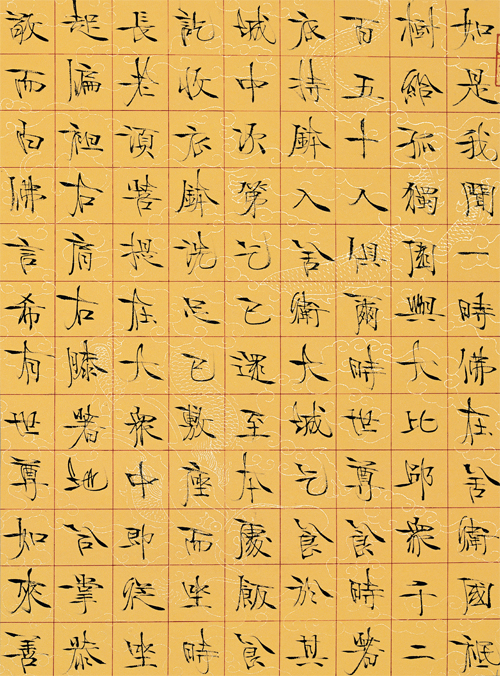 如是我聞一時佛在舍衛國祇
樹給孤獨園與大比邱衆千二
百五十人俱爾時世尊食時著
衣持鉢入舍衛大城乞食於其
城中次第乞已還至本處飯食
訖收衣鉢洗足已敷座而坐時
長老須菩提在大衆中即從坐
起偏袒右肩右膝著地合掌恭
敬而白佛言希有世尊如來善